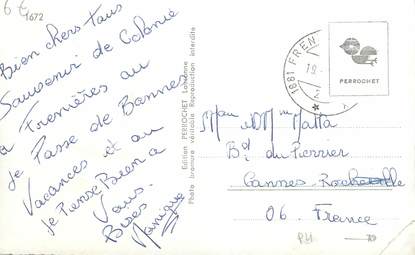 6 €
1672
Bien chers tous
Souvenir de Colonie
a Frenières au
je Passe de Bonnes
Vacances et au
je Pense Bien a
Vous.
Bises
Monique
Edition PERROCHET Lausanne
Photo bromure véritable Reproduction interdite
1881 FREN
19.
PERROCHET
Mr et Mme Matta
Bd du Perrier
Cannes Rocheville
06. France
PH